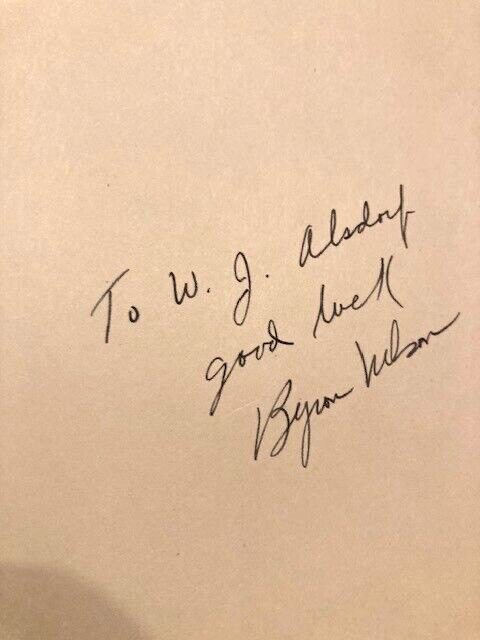 To W. J. Alsdorf
good luck
Byron Nelson